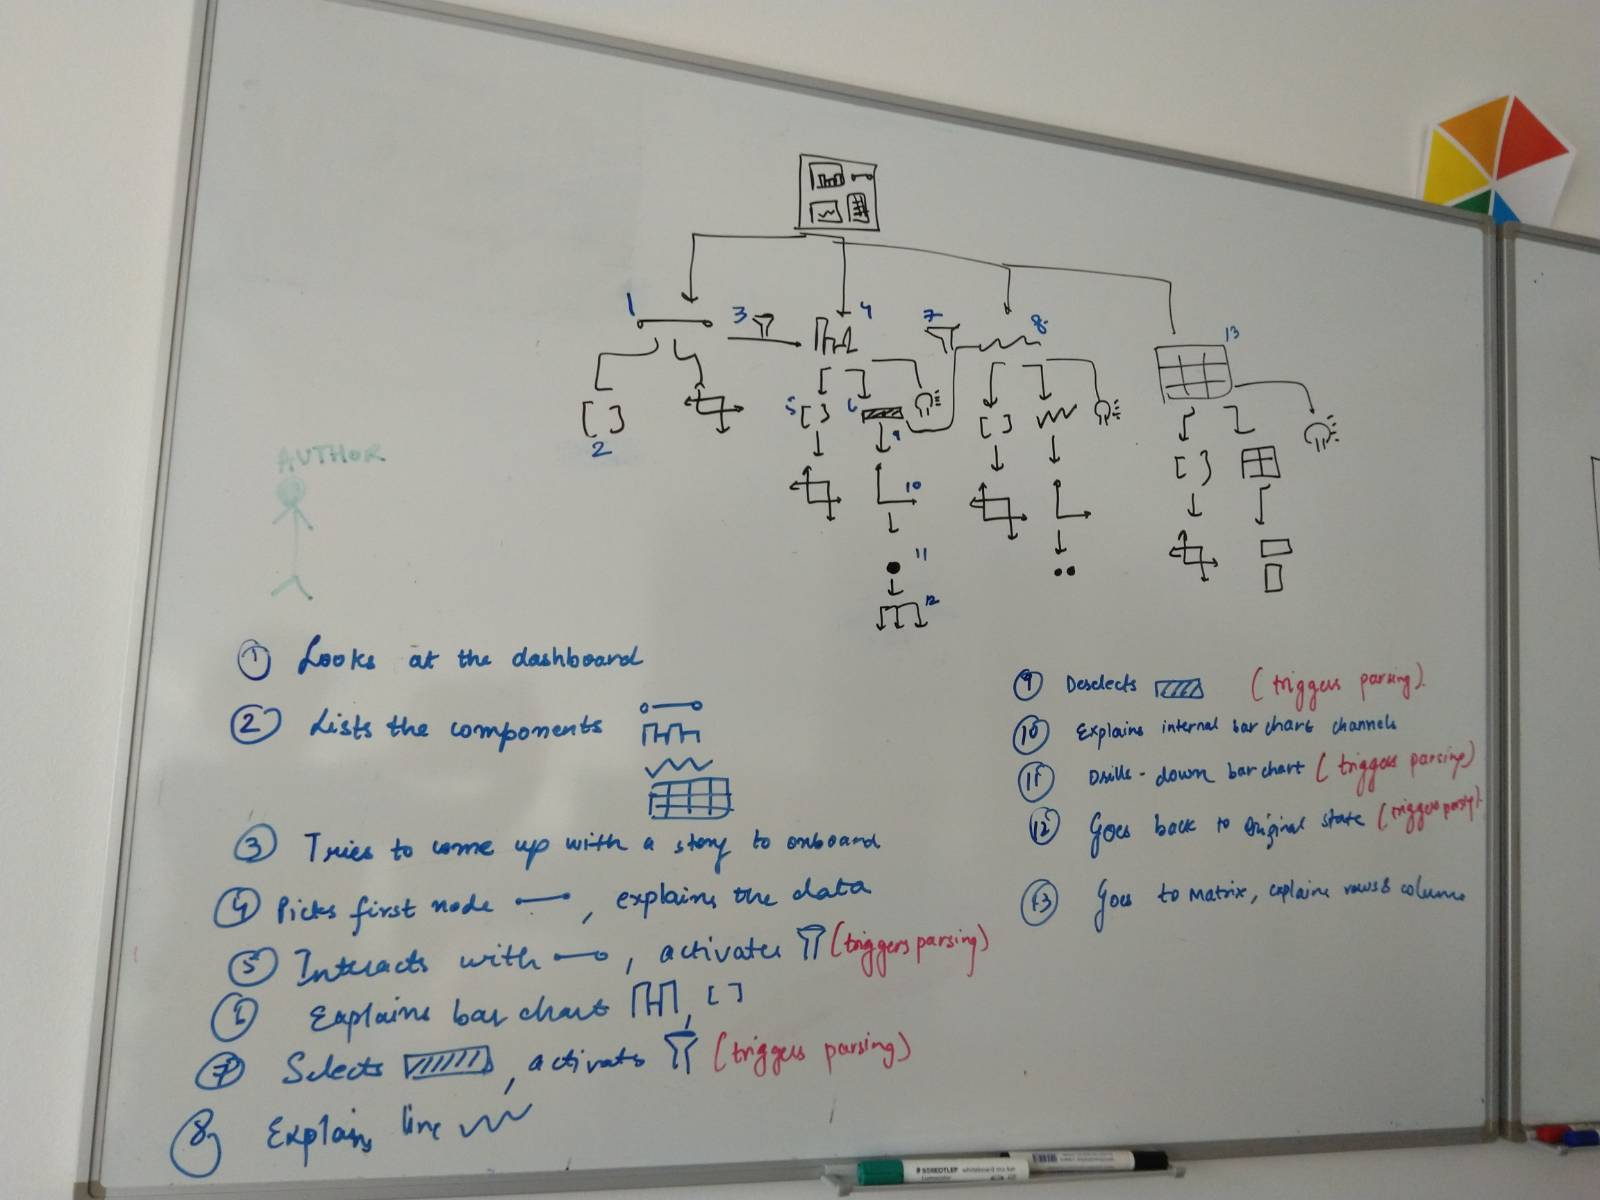 1
3
4
7
8.
13
[ ]
2
5 [ ]
6
[ ]
[ ]
9
10
11
12
AUTHOR
① Looks at the dashboard
② Lists the components
③ Tries to come up with a story to onboard
④ Picks first node , explains the data
⑤ Interacts with , activates (triggers parsing)
⑥ Explains bar chart , [ ]
⑦ Selects , activats (triggers parsing)
⑧ Explains line
⑨ Deselects (triggers parsing).
⑩ Explains internal bar chart channels
⑪ Drills-down bar chart (triggers parsing)
⑫ Goes back to original state (triggers parsing).
⑬ Goes to matrix, explains rows & columns
STAEDTLER